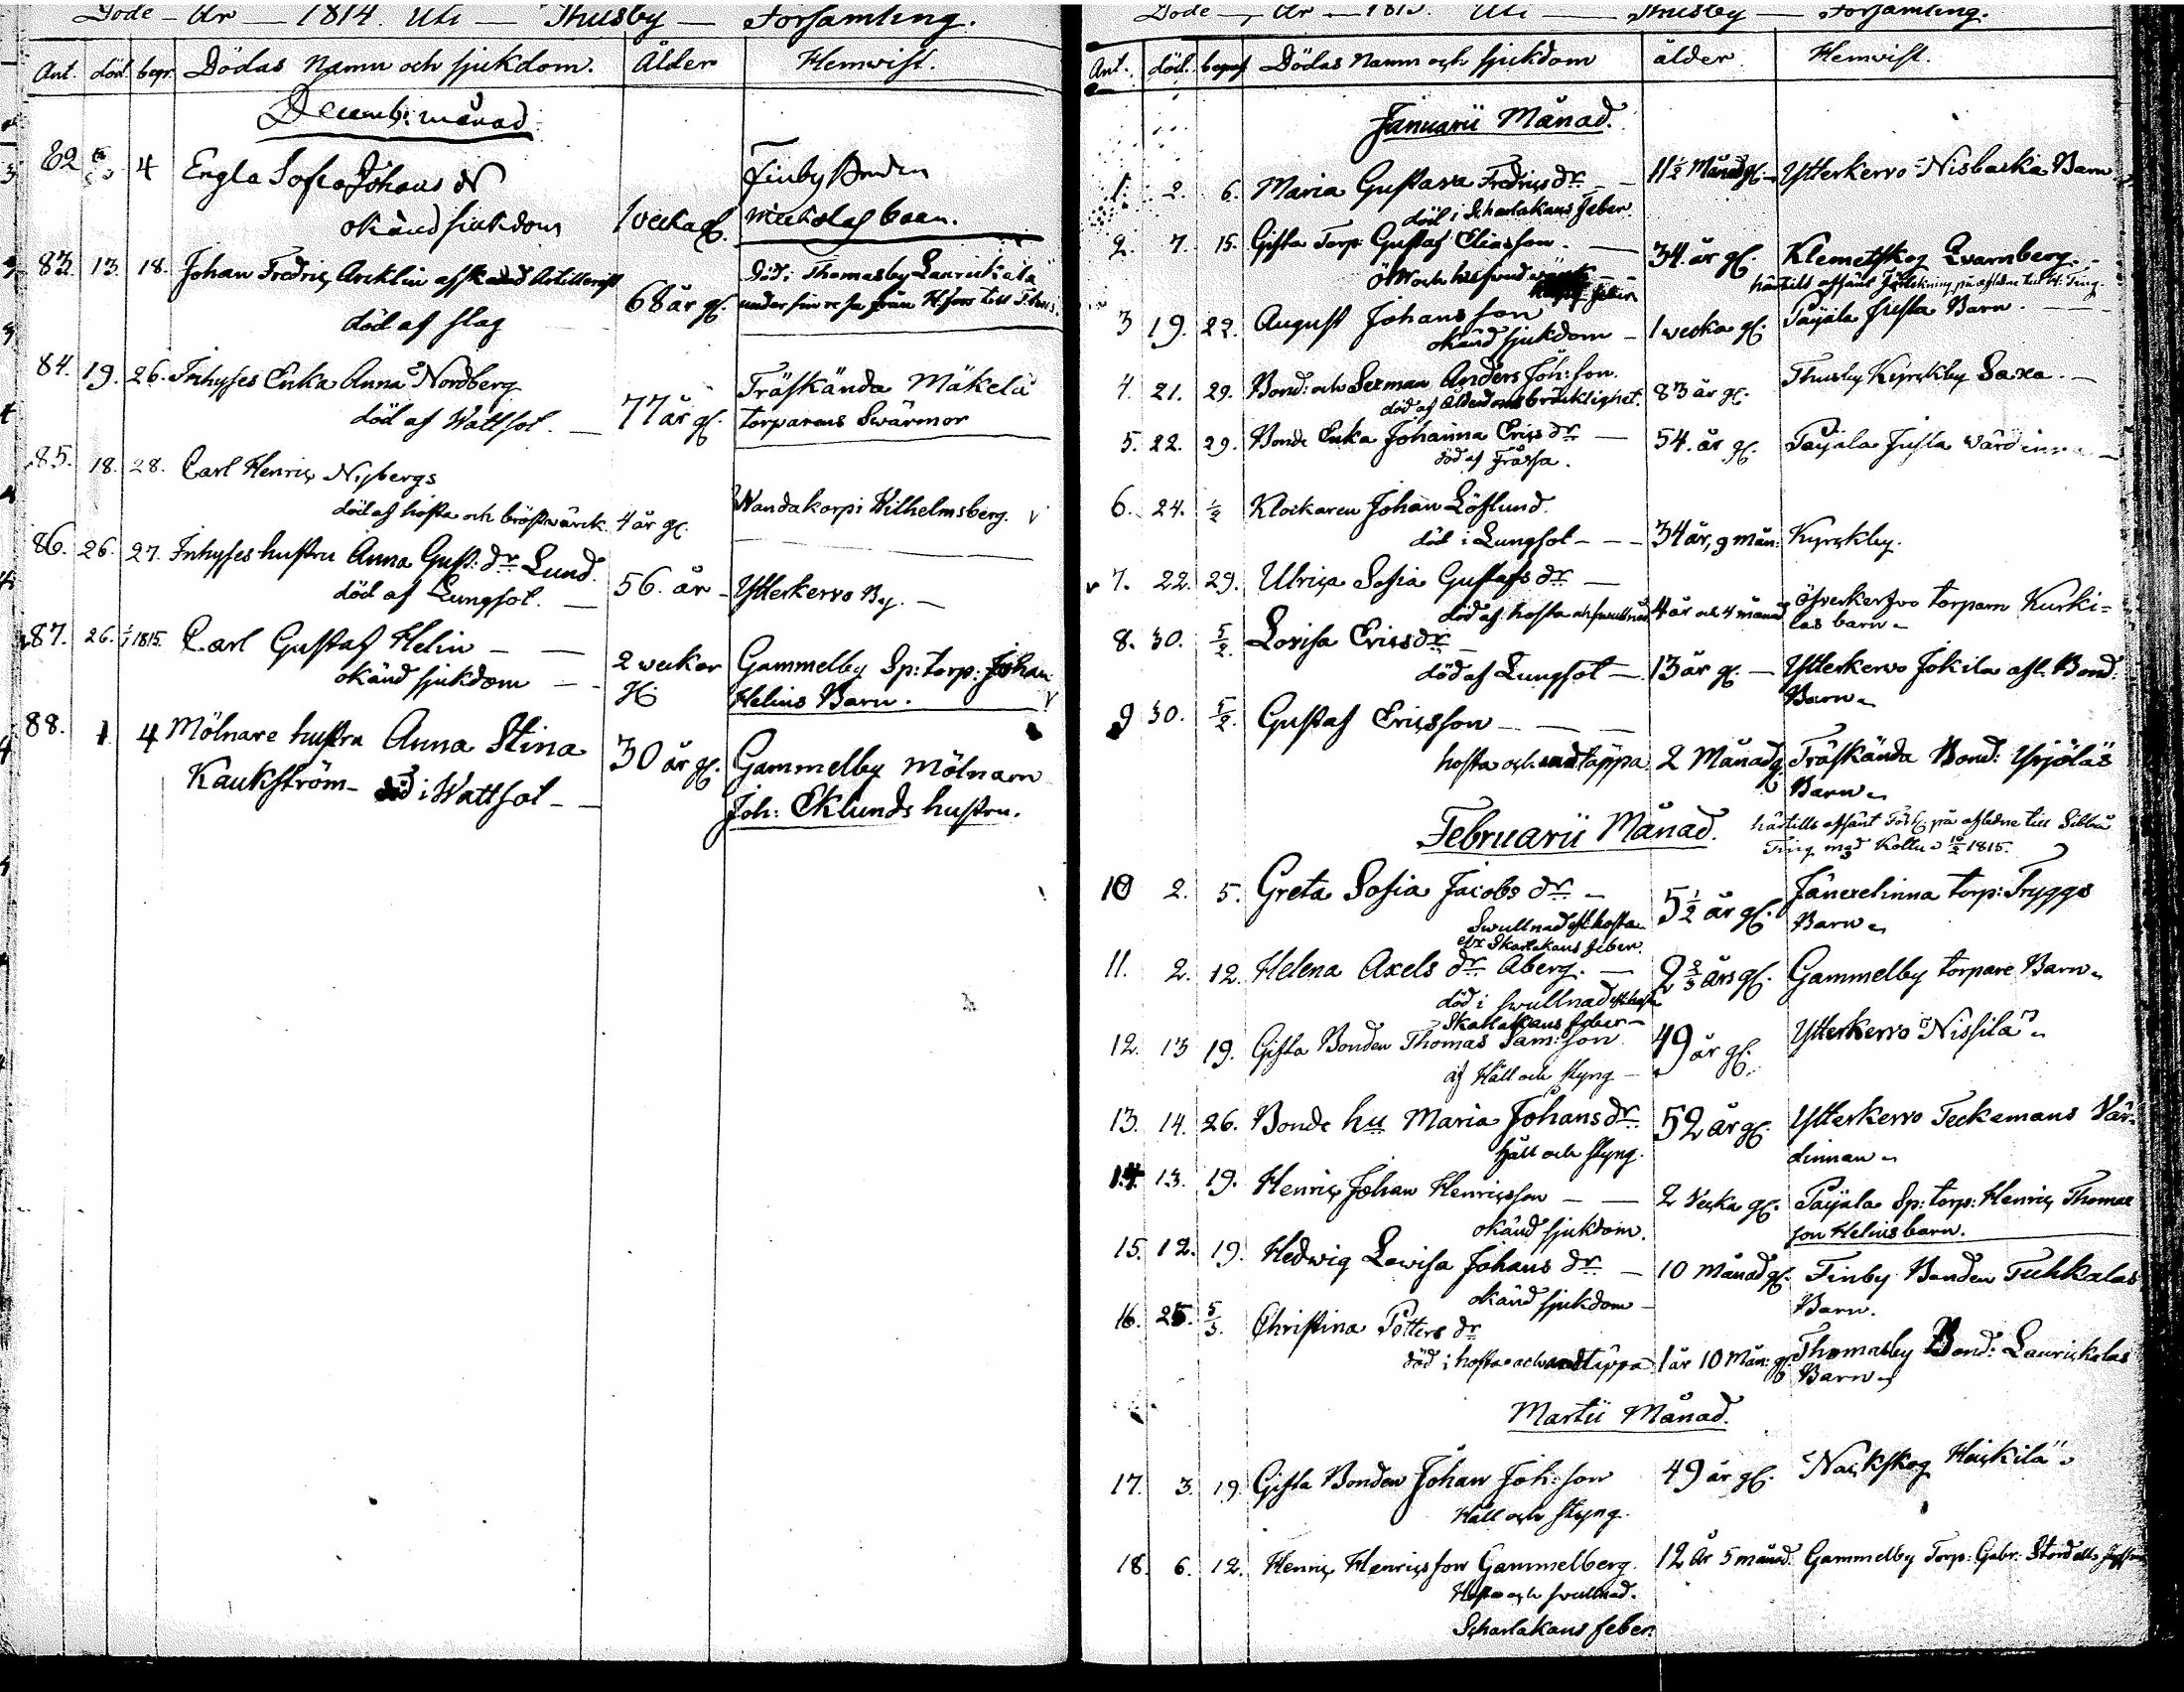 Döde - År - 1814. Uti - Thusby - Församling.
Ant. död. begr. Dödas Namn och sjukdom. Ålder Hemvist.
Decemb: månad
82 4 Engla Sofia Johans dr Finby Bonden
okänd sjukdom 1 vecka gl. barn.
83. 13. 18. Johan Fredric Arcklin afskedad Artillerist 68 år gl. Död i Thomasby Laurickala
död af slag under sin resa från H:fors till
84. 19. 26. Inhyses Enka Anna Nordberg Träskända Mäkelä
död af Wattsot. 77 år gl. torparens Swärmor
85. 18. 28. Carl Henric Nybergs
död af hosta och bröstwärck. 4 år gl. Wandakorpi Wilhelmsberg.
86. 26. 27. Inhyses hustru Anna Gust: dr Lund.
död af Lungsot. 56. år - Ytterkervo By.
87. 26. 1/1 1815. Carl Gustaf Helin
okänd sjukdom 2 veckor gl. Gammelby Sp: torp: Johan
Helins Barn.
88. 1 4 Mölnare hustru Anna Stina 30 år gl. Gammelby Mölnarn
Kaukström - död i Wattsot Joh: Eklunds hustru.
Döde - År - 1815. Uti - Thusby - Församling.
Ant. död. begraf Dödas Namn och sjukdom ålder. Hemvist.
Januarii Månad.
1. 2. 6. Maria Gustava Fredrics dr 11 1/2 Månad gl. Ytterkervo Nisbacka Barn
död i Scharlakans feber.
2. 7. 15. Gifta Torp: Gustaf Eliasson. 34. år gl. Klemetskog Qvarnberg.
härtills afsänt Förtekning på aflidne till H: Ting.
3 19. 22. August Johansson 1 wecka gl. Paijala Jusla Barn.
okänd sjukdom
4. 21. 29. Bond: och Sexman Anders Joh: son. 83 år gl. Thusby Kyrckby Saxa.
död af Ålderdoms bräcklighet.
5. 22. 29. Bonde Enka Johanna Erics dr 54. år gl. Paijala Jusla Wärdinna
död af Frässa.
6. 24. 1/2 Klockaren Johan Löflund.
död i Lungsot 34 år, 9 mån: Kyrckby.
7. 22. 29. Ulrica Sofia Gustafs dr
död af hosta och swullnad 4 år och 4 månad Öfverkervo torparn Kurki=
las barn
8. 30. 5/2. Lovisa Erics dr
död af Lungsot 13 år gl. Ytterkervo Jokila afl. Bond.
Barn
9 30. 5/2. Gustaf Ericsson
hosta och andtäppa 2 Månad gl. Träskända Bond: Yrjöläs
Barn
Februarii Månad. härtills afsänt Fört: på aflidne till Sibbo
Ting med Kolhu d 10/2 1815.
10 2. 5. Greta Sofia Jacobs dr 5 1/2 år gl. Jänexelinna torp: Tryggs
Swullnad och hosta Barn
Skarlakans feber.
11. 2. 12. Helena Axels dr Aberg. 2 2/3 års gl. Gammelby torpare Barn
död i swullnad och hosta
Skarlakans feber
12. 13 19. Gifta Bonden Thomas Sam: son 49 år gl. Ytterkervo Nissilä
af Håll och styng
13. 14. 26. Bonde hu Maria Johans dr 52 år gl. Ytterkervo Teckemans Vär-
håll och styng. dinnan
14. 13. 19. Henric Johan Henricsson 2 Vecka gl. Paijala Sp: torp: Henric Thomas
okänd sjukdom. son Helins barn.
15. 12. 19. Hedwig Lovisa Johans dr 10 Månad gl. Finby Bonden Tuhkalas
okänd sjukdom Barn.
16. 25. 5/3. Christina Petters dr
död i hosta och andtäppa 1 år 10 Mån: gl. Thomasby Bond: Laurickalas
Barn
Martii Månad.
17. 3. 19. Gifta Bonden Johan Joh: son 49 år gl. Nackskog Heickilä
Håll och styng.
18. 6. 12. Henric Henricsson Gammelberg. 12 år 5 månad. Gammelby Torp: Gabr:
Hosta och swullnad.
Scharlakans feber.